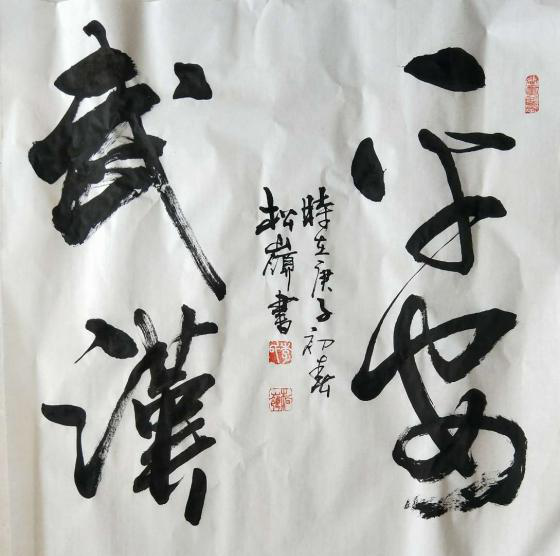 平安
武漢
時在庚子初春
松嶺書